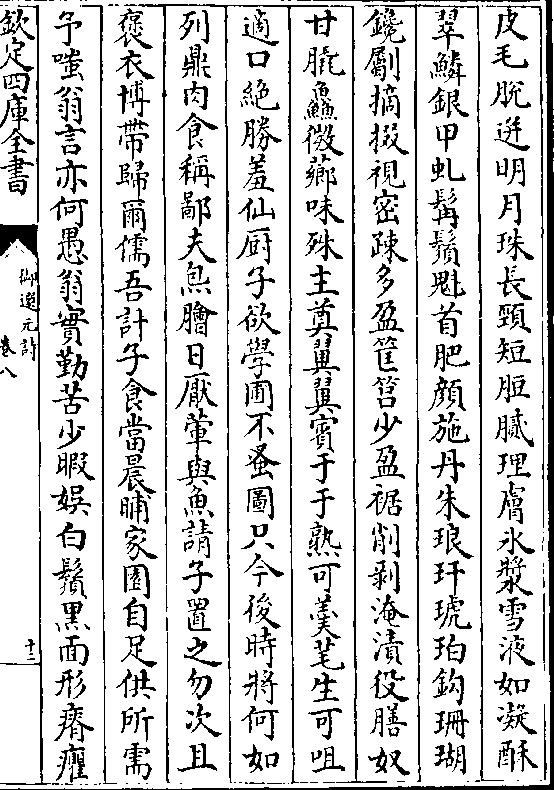 皮毛脫迸明月珠長頸短脰膩理膚氷漿雪液如凝酥
翠鱗銀甲虬髯鬚魁首肥顔施丹朱琅玕琥珀鈎珊瑚
鑱劚摘掇視密疎多盈筐筥少盈裾削剥淹漬役膳奴
甘脆鱻微薌味殊主奠翼翼賔于于熟可羮芼生可咀
適口絶勝羞仙厨子欲學圃不蚤圖只今後時將何如
列鼎肉食稱鄙夫炰膾日厭葷與魚請子置之勿次且
褒衣博帶歸爾儒吾計子食當晨晡家園自足供所需
予嗤翁言亦何愚翁實勤苦少暇娱白鬚黒面形瘠癯
欽定四庫全書
御選元詩
卷八
十三